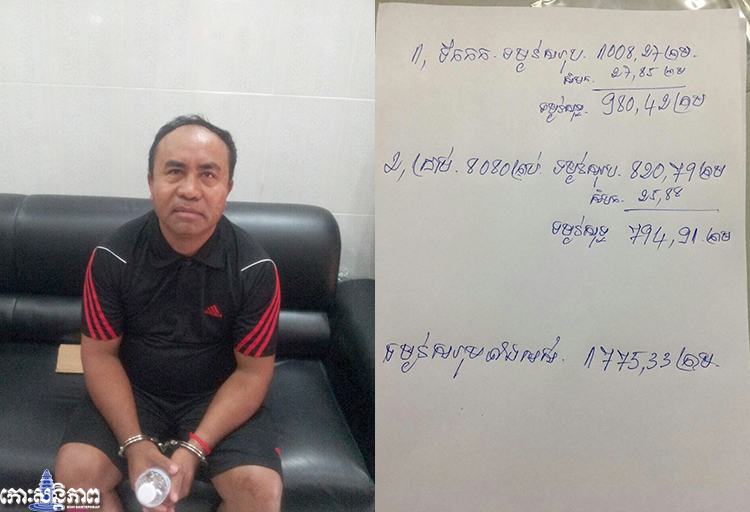 1, ទឹកកក. ទម្ងន់សរុប. 1008,27ក្រាម.
សំបក. 27,85 ក្រាម
ទម្ងន់សុទ្ធ. 980,42ក្រាម
2, គ្រាប់. 8080គ្រាប់. ទម្ងន់សរុប. 820,79ក្រាម
សំបក. 25,88
ទម្ងន់សុទ្ធ 794,91.ក្រាម
ទម្ងន់សរុបទាំងអស់. 1775,33ក្រាម.
កោះសន្តិភាព
KOH SANTEPHEAP